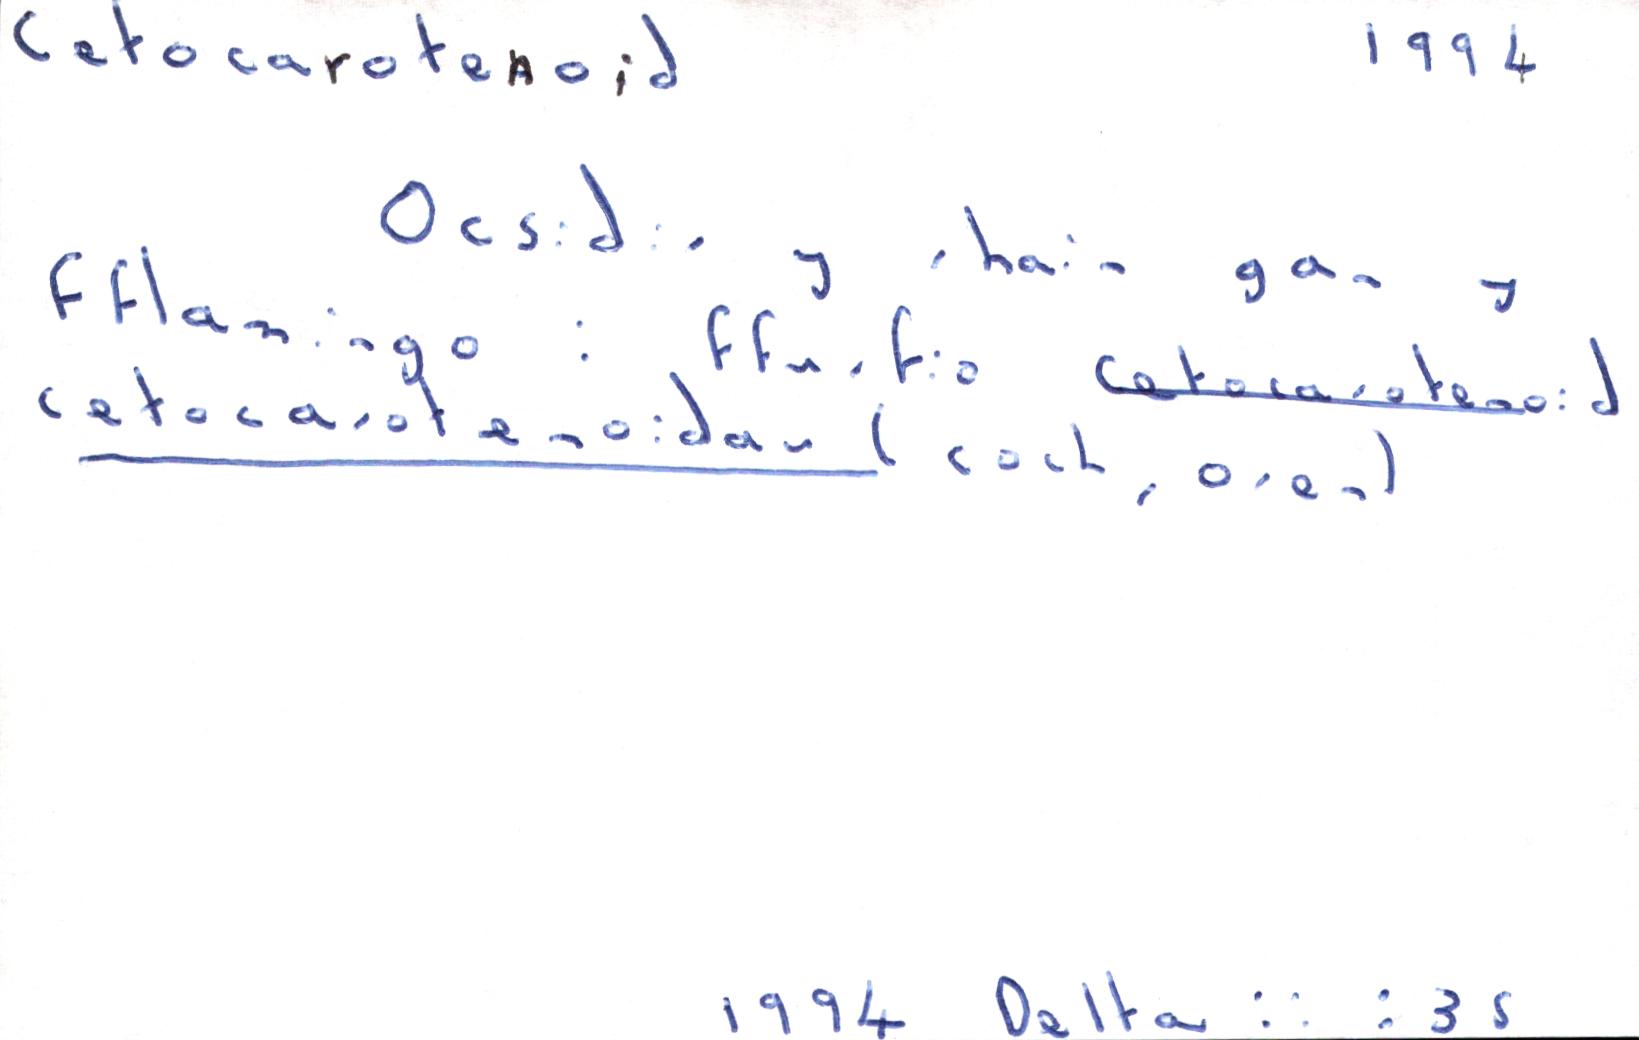 Cetocarotenoid 1994
Ocsidir y rhain gan y
fflamingo i ffurfio cetocarotenoid
cetocarotenoidau (coch, oren)
1994 Delta ii :35